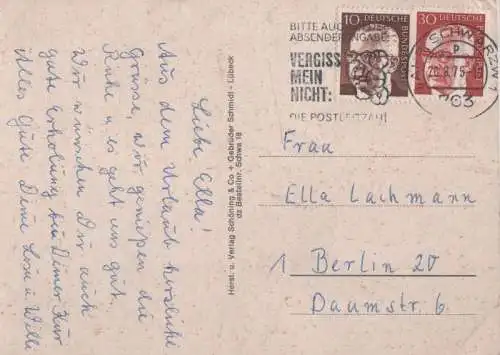 Liebe Ella!
Aus dem Urlaub herzliche
Grüsse, wir genießen die
Ruhe u es geht uns gut.
Wir wünschen Dir auch
gute Erholung bei Deiner Kur
Alles Gute Deine Losi u Willi
Horst. u. Verlag Schöning & Co + Gebrüder Schmidt - Lübeck
dz Bestellnr. Schwa 18
BITTE AUCH
ABSENDERANGABE
VERGISS
MEIN
NICHT:
DIE POSTLEITZAHL
10 DEUTSCHE BUNDESPOST
30 DEUTSCHE BUNDESPOST
SCHWARZ
20.8.75
Frau
Ella Lachmann
1 Berlin 20
Daumstr. 6